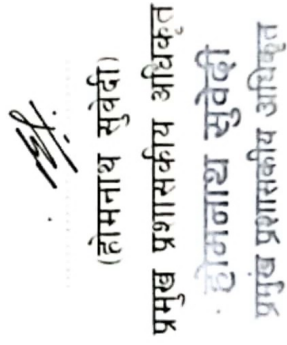 (होमनाथ सुवेदी)
प्रमुख प्रशासकीय अधिकृत
होमनाथ सुवेदी
प्रमुख प्रशासकीय अधिकृत